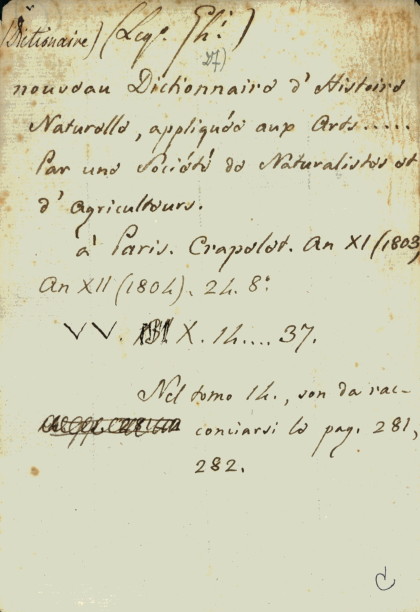 (Dictionaire) (Leg. Gh.)
27)
nouveau Dictionnaire d'Histoire
Naturelle, appliquée aux Arts.....
Par une Société de Naturalistes et
d'Agriculteurs.
à Paris. Crapelet. An XI (1803)
An XII (1804). 24. 8.º
VV. X. 14.... 37.
Nel tomo 14., son da rac-
conciarsi le pag. 281,
282.